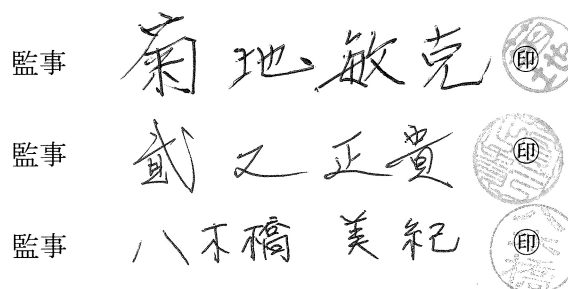 監事 菊地敏克 ㊞
監事 貳又正貴 ㊞
監事 八木橋 美紀 ㊞